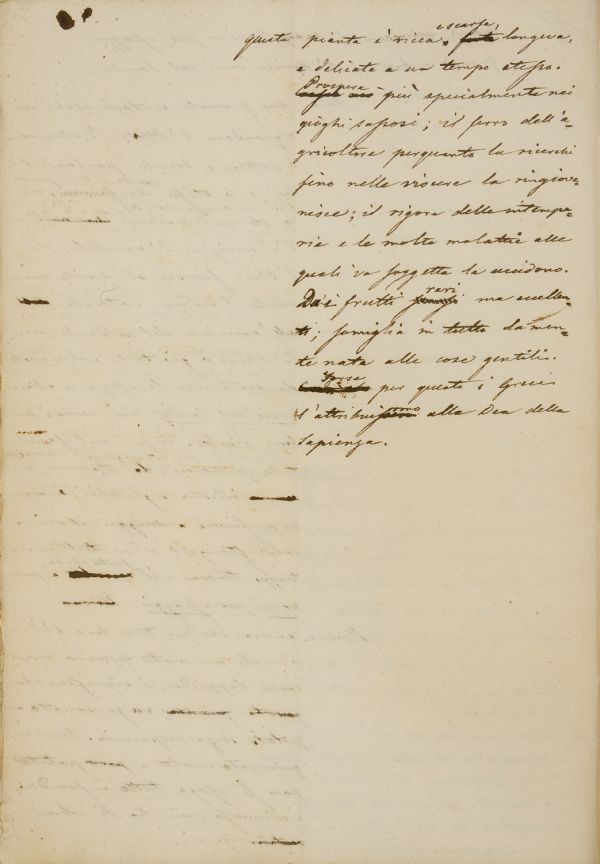 e scarsa,
questa pianta è ricca, forte longeva,
e delicata a un tempo stesso.
Prospera
più specialmente nei
luoghi sassosi; il ferro dell'a-
gricoltore perquanto la ricerchi
fino nelle viscere la ringiova-
nisce; il rigore delle intempe-
rie e le molte malattie alle
quali va soggetta la uccidono.
rari
Dà i frutti ma eccellen-
ti; somiglia in tutto la men-
te nata alle cose gentili.
forse
per questo i Greci
l'attribuirono alla Dea della
Sapienza.